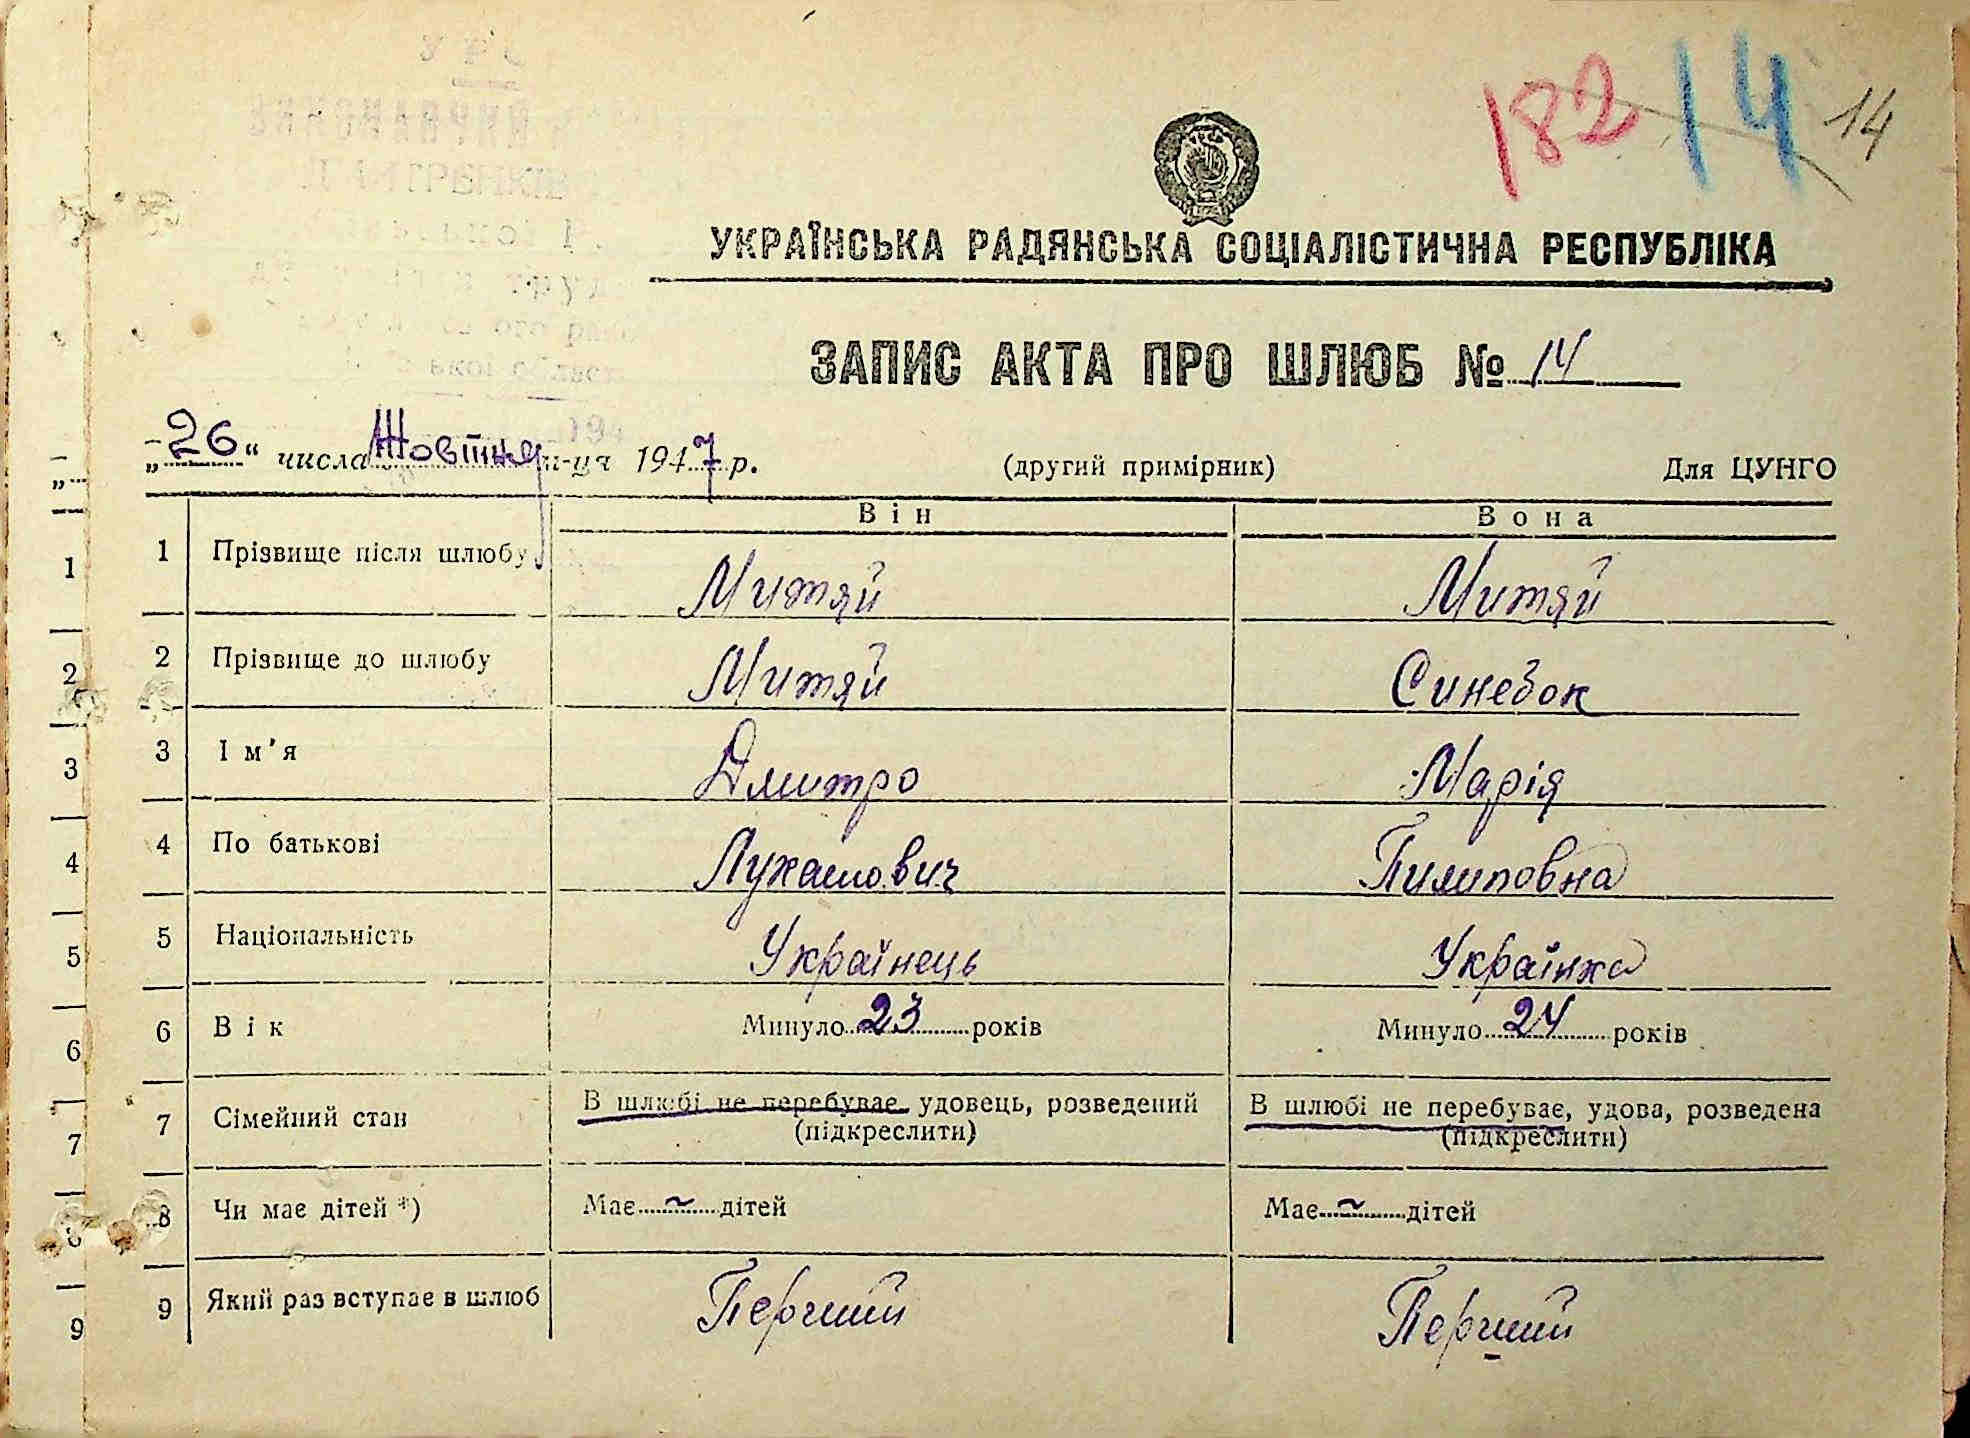 182 14 14
УКРАЇНСЬКА РАДЯНСЬКА СОЦІАЛІСТИЧНА РЕСПУБЛІКА
ЗАПИС АКТА ПРО ШЛЮБ № 14
„26“ числа Жовтня м-ця 1947 р. (другий примірник) Для ЦУНГО
Він Вона
1 1 Прізвище після шлюбу Митяй Митяй
2 2 Прізвище до шлюбу Митяй Синебок
3 3 Ім'я Дмитро Марія
4 4 По батькові Лукашович Пилиповна
5 5 Національність Українець Українка
6 6 Вік Минуло 23 років Минуло 24 років
7 7 Сімейний стан В шлюбі не перебуває, удовець, розведений В шлюбі не перебуває, удова, розведена
(підкреслити) (підкреслити)
8 8 Чи має дітей *) Має ~ дітей Має ~ дітей
9 9 Який раз вступає в шлюб Перший Перший